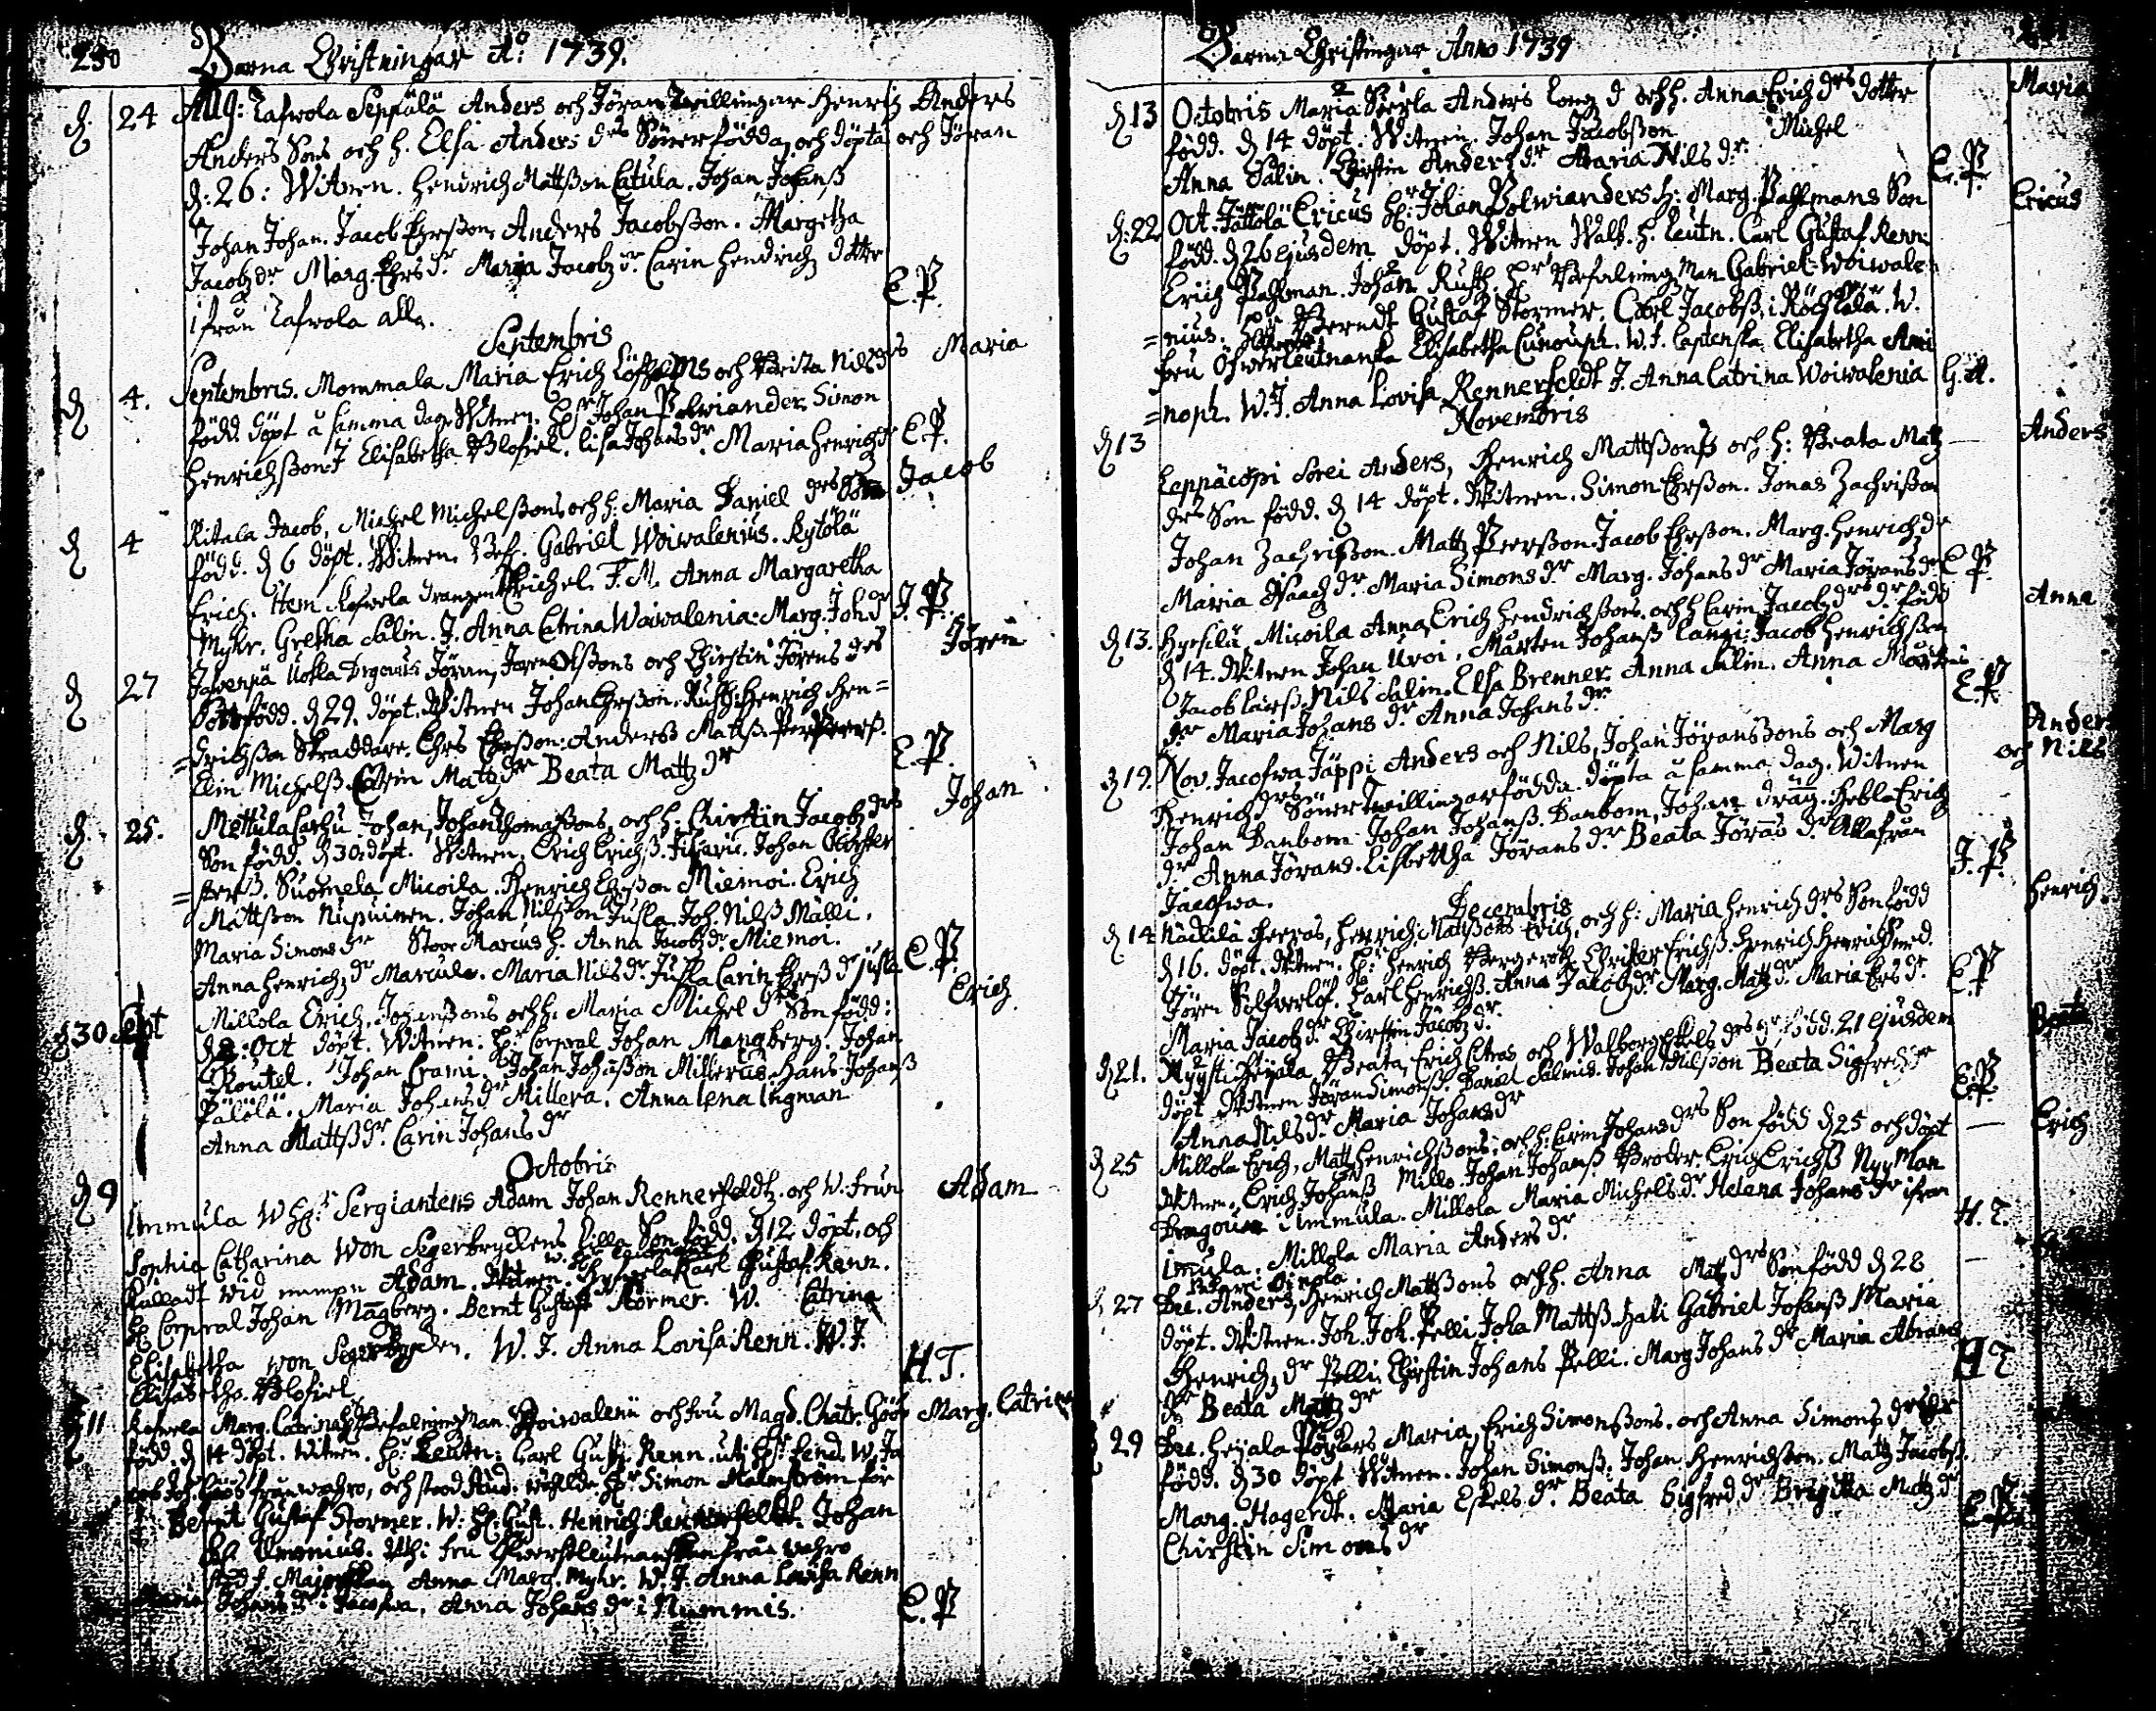 230 Barna Christningar Ao: 1739.
d. 24 Aug: Lafwola Seppälä Anders och Jöran Twillingar Henrich Anders
Anders Sons och h. Elsa Anders drs Söner födda, och döpta och Jöran
d: 26: Witnen. Hendrich Mattßon Catula. Johan Johanß
Johan Johan. Jacob Ehrsson. Anders Jacobßon. Margetha
Jacobz dr Marg. Ehrs dr Maria Jacobz dr Carin Hendrichz dotter
ifrån Lafwola alla. E. P.
Septembris
d 4. Septembris. Mommala Maria Erich Löfholms och Brita Nils drs Maria
född. döpt å samma dag. Witnen. Hr Johan Polwiander. Simon
Henrichßon J Elisabetha Blofiel. Lisa Johans dr Maria Henrichz dr E. P.
d 4 Kitala Jacob, Michel Michelßons och h. Maria Daniel drs Son Jacob
född. d 6 döpt. Witnen. Bef. Gabriel Woiwalenius. Kytölä
Erich. Item Rafwola drangen Michel. F. M. Anna Margaretha
Myhr. Gretha Salin. J. Anna Catrina Woiwalenia: Marg. Joh. dr J. P.
d 27 Jafwenpä Uotla Dragouns Jöran, Jören Olßons och Chirstin Jörens drs Jören
Son född. d 29. döpt. Witnen Johan Ehrsson. Rusth. Henrich Hen=
=drichßon Skraddare. Ehrs Ehrsson: Anders Mattß. Per Peerß.
Elin Michelß Carin Mattz dr Beata Mattz dr E. P.
d. 25. Mettula Carhu Johan, Johan Thomaßons, och h. Chirstin Jacobz drs Johan
Son född. d 30. döpt. Witnen. Erich Erichß. Johan Christer
=sterß. Suomela. Micoila. Henrich Ehrsson Miemoi. Erich
Mattßon Nupuinen. Johan Nilßon Jusla. Joh. Nilß Mälli.
Maria Simons dr Stoor Marcus h. Anna Jacobz dr Miemoi.
Anna Henrichz dr Marcula. Maria Nils dr Jusla Carin Ehrß dr Jusla E. P.
d 30 Sept Millola Erich. Johanßons och h. Maria Michel drs Son född: Erich
d 2: Oct döpt. Witnen: Hr Corpral Johan Mangberg. Johan
Routel. Johan Crami. Johan Johanßon Millerus. Hans Johanß
Pälölä. Maria Johans dr Millera. Anna Lena Ingman
Anna Mattß dr. Carin Johans dr
Octobris
d 9 Immula W Hr Sergiantens Adam Johan Rennerfeldtz. och W. Frun Adam
Sophia Catharina Won Segerbrydens Lilla Son född. d 12 döpt, och
Kalladt wid nampn Adam. Witnen. Carl Gustaf Renn.
Hr Corpral Johan Mãgberg. Bernt Gustaf Stormer. W. Catrina
Elisabetha von Segerbryden. W. J. Anna Lovisa Renn. W. J.
Elisabetha Blofiel H. T.
d 11 Rafwola Marg. Catrina, Befalningsman Woiwalenii och fru Magd. Chatr. Göös Marg. Catrina
född. d 14 döpt. Witnen. Hr Leutn: Carl Gust. Renn. uti Hr Fend. W. Ja
och stood Hr Simon Malmström för
Bernt Gustaf Stormer. W. Hr Gust. Henrich Rennerfeldt. Johan
Uronius. Uthi fru Öfwerstleutnanskan från wahro
Majorskan Anna Marg. Myhr. W. J. Anna Lovisa Renn
Maria Johans dr i Jacofwa, Anna Johans dr i Nummis. E. P
Barna Christingar Anno 1739
d 13 Octobris Maria Seerla Anders Long d och h. Anna Erich drs dotter Maria
född. d 14 döpt. Witnen. Johan Jacobßon Michel
Anna Salin. Chirstin Anders dr Maria Nils dr E. P.
d: 22 Oct. Jättölä Ericus Hr Johan Polwianders h: Marg. Pahlmans Son Ericus
född. d 26 ejusdem döpt. Witnen Walb. h. Leutn. Carl Gustaf Renn:
Erich Pahlman. Johan Rusth. Hr Befalningz Man Gabriel Woiwale=
=nius. Hr Berndt Gustaf Stormer, Carl Jacobß. i Röhkälä. W.
fru Öfwerleutnanska Elisabetha Cunouph. W. f. Captenska Elisabetha Ami
=noph. W. J. Anna Lovisa Rennerfeldt J. Anna Catrina Woiwalenia G. A.
Novembris
d 13 Leppäcorpi Sorei Anders, Henrich Mattßons och h: Beata Matz Anders
drs Son född. d 14 döpt. Witnen. Simon Ehrsson. Jonas Zachrißon
Johan Zachrißon. Mattz Peerßon. Jacob Ehrsson. Marg. Henrichz dr
Maria Isaachz dr. Maria Simons dr Marg. Johans dr Maria Jörans dr E P.
d 13. Hyrsilä Micoila Anna, Erich Hendrichßons. och h Carin Jacobz drs dr född Anna
d 14. Witnen Johan Uroi. Mårten Johanß Cangi: Jacob Henrichßon
Jacob Larß. Nils Salin. Elsa Brenner. Anna Salin. Anna Mårtens
dr Maria Johans dr Anna Johans dr E. P.
d 19. Nov. Jacofwa Jäppi Anders och Nils, Johan Jöranßons och Marg Anders
och Nils
Henrich drs Söner Twillingar födda. döpta å samma dag. Witnen
Johan Danbom. Johan Johanß. Danbom, Johan dräg. Hebla Erich
dr Anna Jörans. Lisbettha Jörans dr Beata Jöras dr Alla från
Jacofwa. J. P.
Decembris
d 14 Näckilä Heeros, Henrich, Matßons Erich, och h: Maria Henrich drs Son född Henrich
d 16. döpt. Witnen. Hr Henrich Bergeroth. Christer Erichß. Henrich Henrichß
Jören Silfwerlöf. Carl Henrichß. Anna Jacobz dr. Marg. Matz dr. Maria Ers dr
Maria Jacobz dr Chirstin Jacobz dr E P
d 21. Nyysti Heijala Beata, Erich Citros och Walborg Eskels drs dr född. 21 ejusdem Beata
döpt Witnen Jöran Simonß. Daniel Salenius. Johan Nilßon Beata Sigfredz dr
Anna Nils dr Maria Johans dr E. P.
d 25 Millola Erich, Matt Henrichßons, och h. Carin Johans drs Son född d 25 och döpt Erich
Witnen. Erich Johanß Millo. Johan Johanß Broder. Erich Erichß Nyy Man
Dragoun i Immula. Millola Maria Michels dr Helena Johans dr ifrån
Imula. Millola Maria Anders dr H. T.
d 27 Dec. Anders, Henrich Mattßons och h. Anna Matz drs Son född d 28
döpt. Witnen. Joh. Joh. Pelli Joha Mattß. Hali Gabriel Johanß Maria
Henrichz dr Pelli Chirstin Johans Pelli. Marg Johans dr Maria Abrams
dr Beata Mattz dr H T
29 Dec. Heijala Pöykars Maria, Erich Simonßons. och Anna Simons drs dr
född. d 30 döpt Witnen. Johan Simonß. Johan Henrichßon. Matz Jacobß.
Marg. Hagerdt. Maria Eskels dr Beata Sigfred dr Brigitta Matz dr
Chirstin Simons dr E. P.